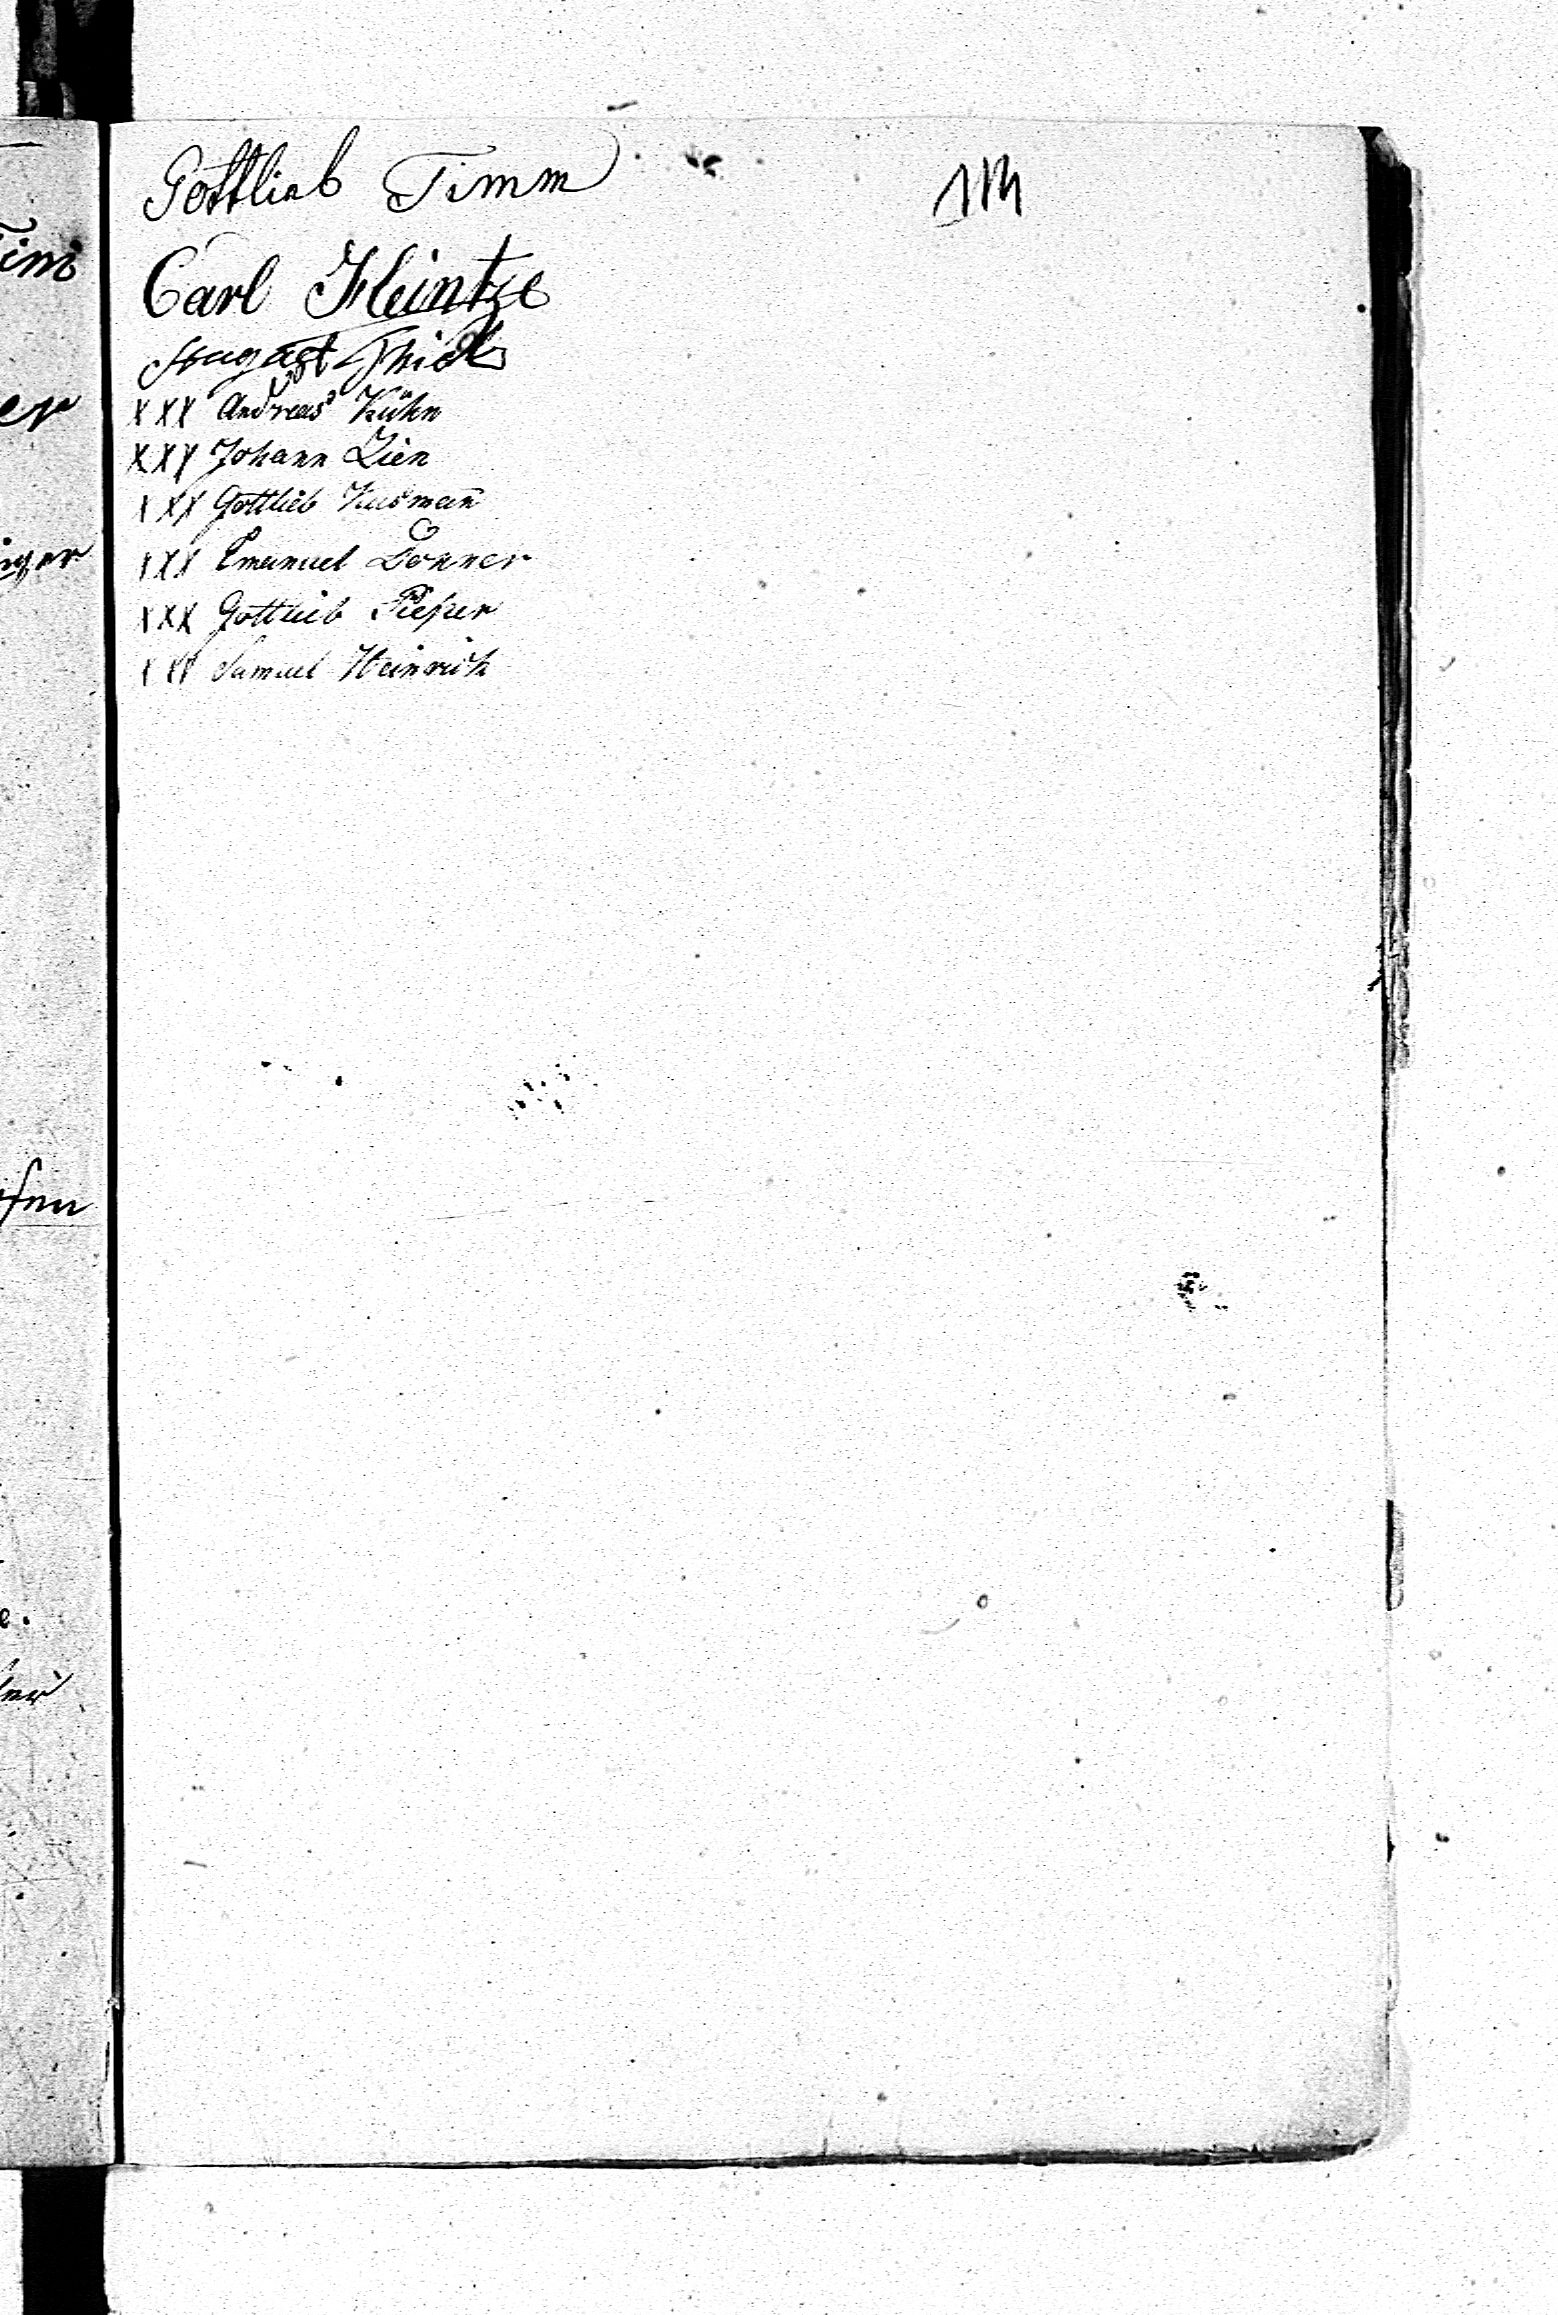 Gottlieb Timm
114
Carl Heintze
August Thiele
XXX Andreas Kühn
XXX Johann Zien
XXX Gottlieb Kusman̄
XXX Emanuel Donner
XXX Gottlieb Pieper
XXX Samuel Heinrich
er